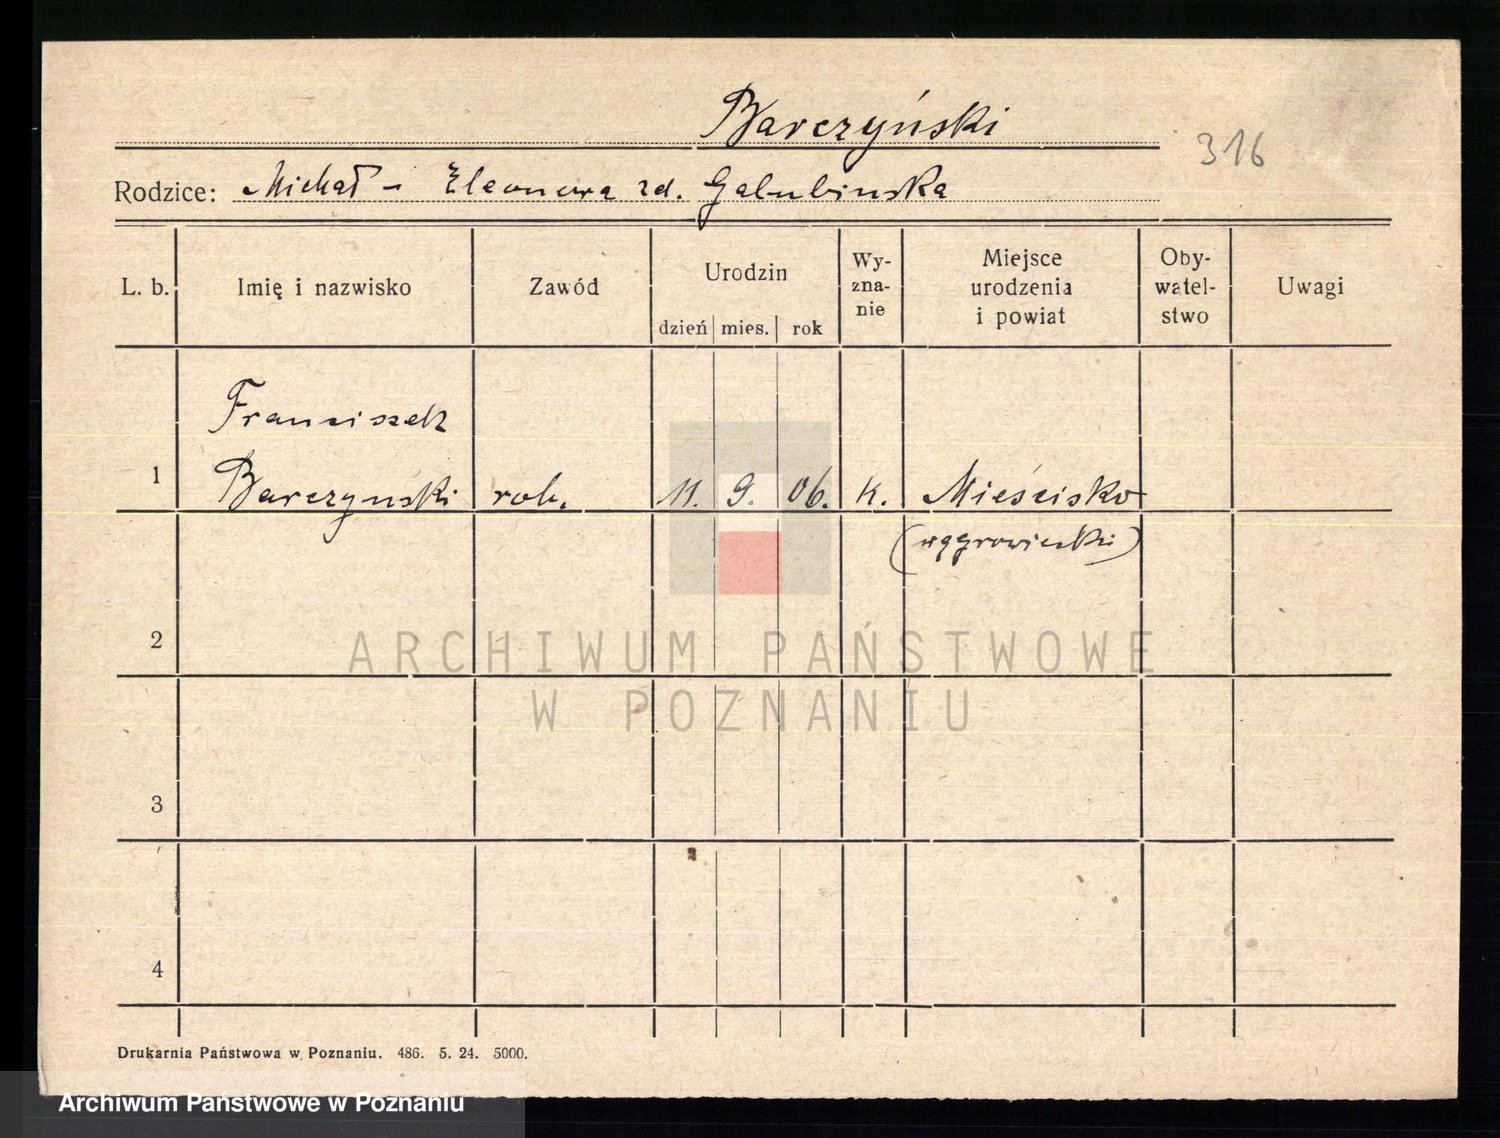 Barczyński
316
Rodzice: Michał – Eleonora zd. Galubinska
L. b. Imię i nazwisko Zawód Urodzin dzień mies. rok Wy-zna-nie Miejsce urodzenia i powiat Oby-watel-stwo Uwagi
Franciszek
1 Barczyński rob. 11. 9. 06. k. Mieścisko
(wągrowiecki)
2
ARCHIWUM PAŃSTWOWE
W POZNANIU
3
4
Drukarnia Państwowa w Poznaniu. 486. 5. 24. 5000.
Archiwum Państwowe w Poznaniu